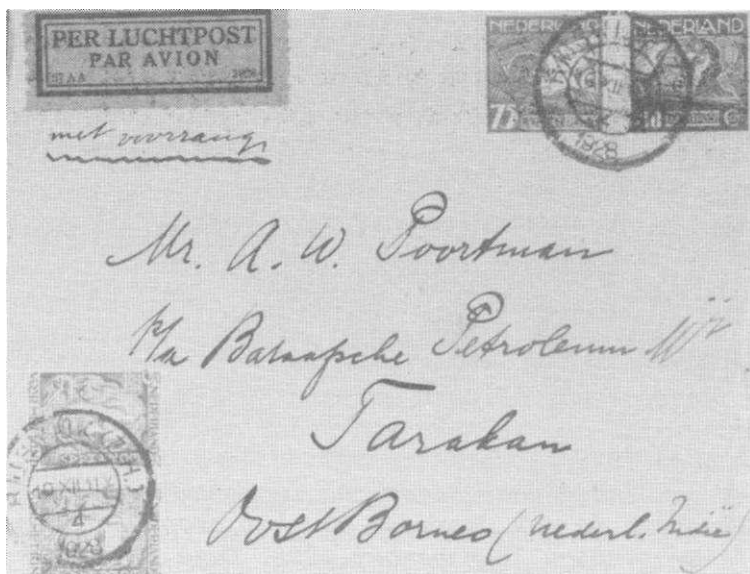 PER LUCHTPOST
PAR AVION
met voorrang
NEDERLAND NEDERLAND
75
1928
Mr. A. W. Poortman
p/a Bataafsche Petroleum Mij
Tarakan
Oost Borneo (nederl. Indië)
1928